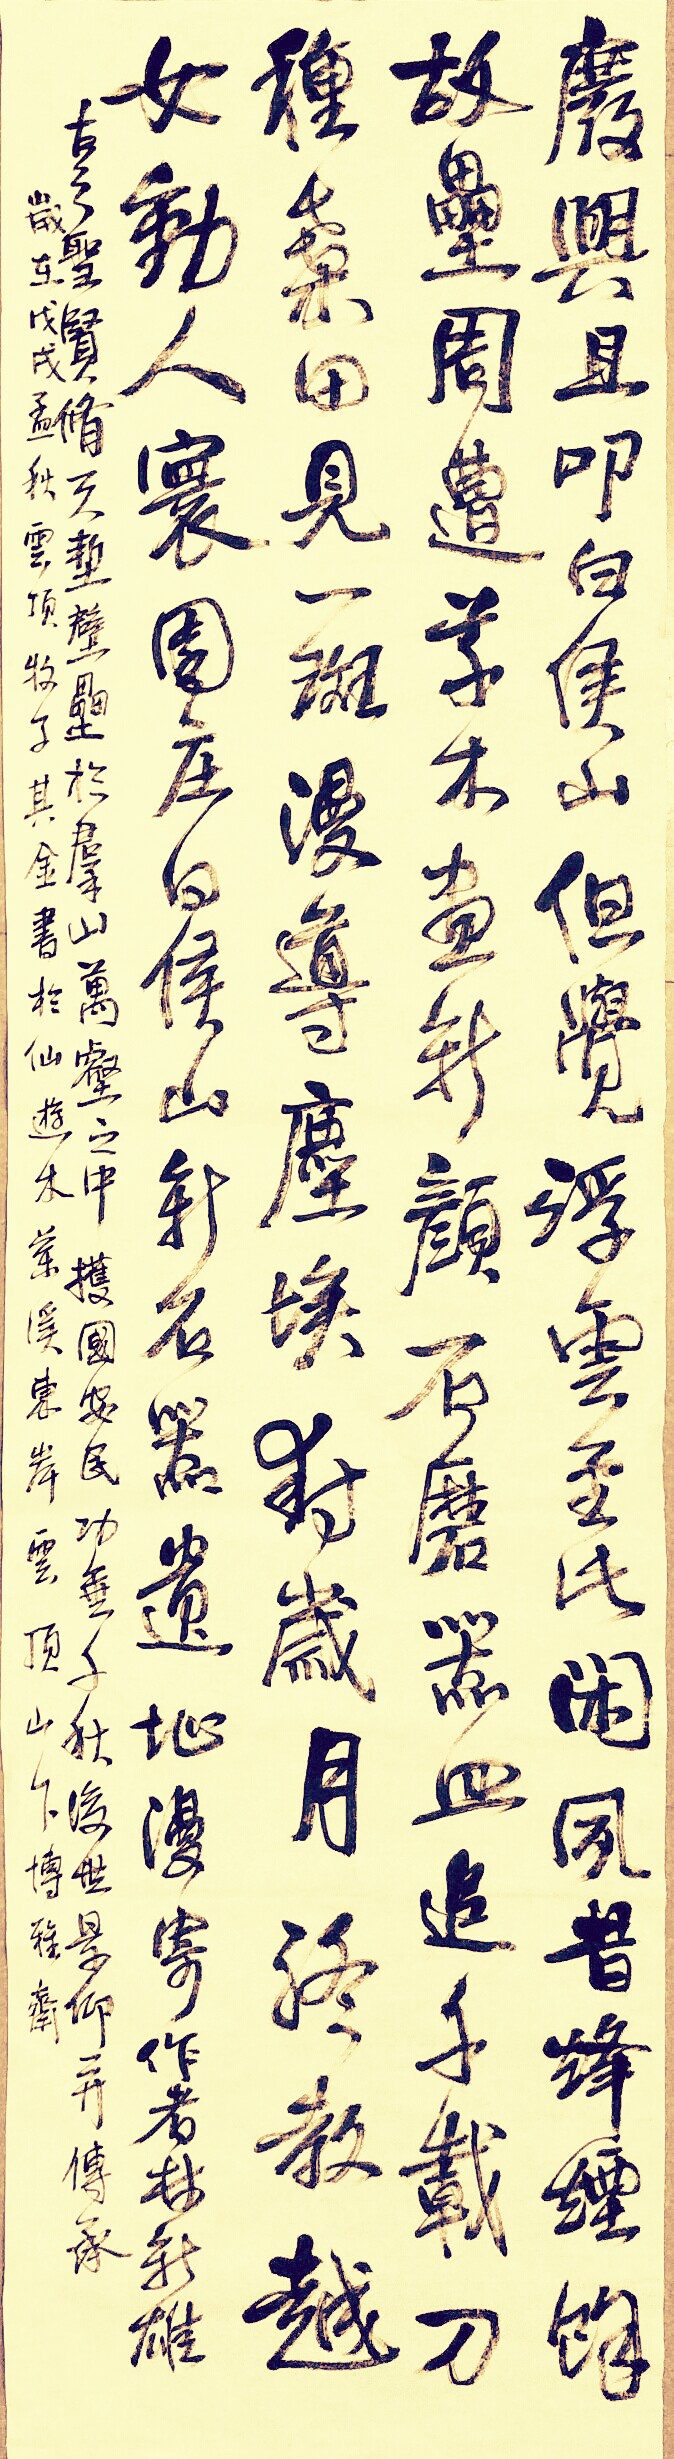 廢興且叩白侯山但覺浮雲至此閑夙昔烽煙餘
故壘周遭草木盡新顏石磨器皿追千載刀
種桑田見一斑漫導塵埃封歲月終教越
女動人寰 園庄白侯山新石器遺址漫寄 作者林新雄
古之聖賢脩天塹壁壘於羣山萬壑之中 攫國安民 功垂千秋後世景仰并傳承
歲在戊戌孟秋雲頂牧子其金書於仙遊木蘭溪東岸雲頂山下博雅齋